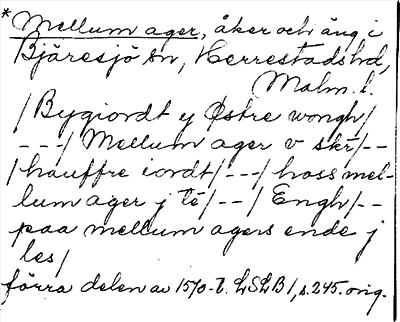 * Mellum ager, åker och äng i
Bjäresjö sn, Herrestads hd,
Malm. l.
/Bygiordt y Østre wongh/
---/Mellum ager v skr̄/--
/hauffre iordt/---/hoss mel-
lum ager j te̅/--/Engh/--
paa mellum agers ende j
les/
förra delen av 1570-t. LSLB1, s.245. orig.